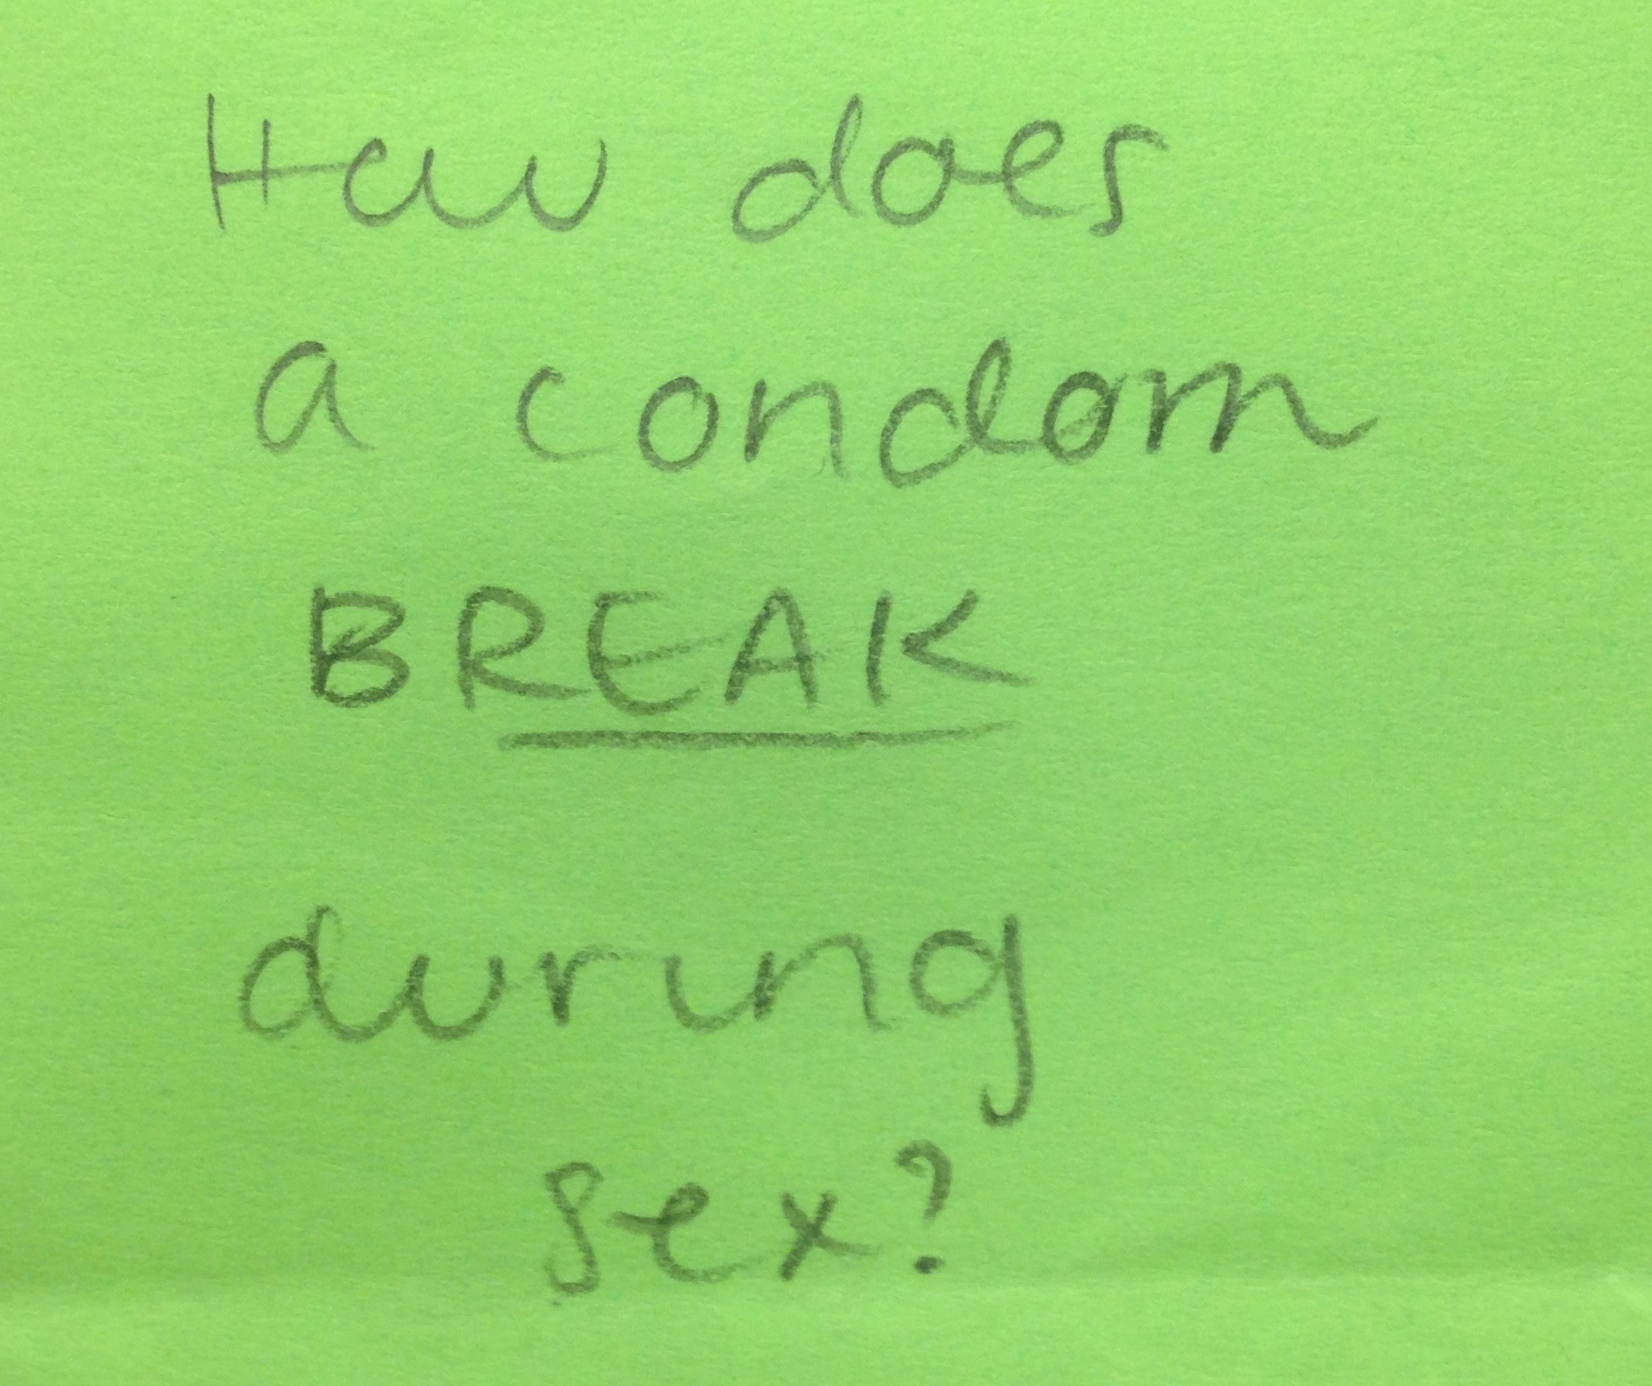 How does
a condom
BREAK
during
sex?